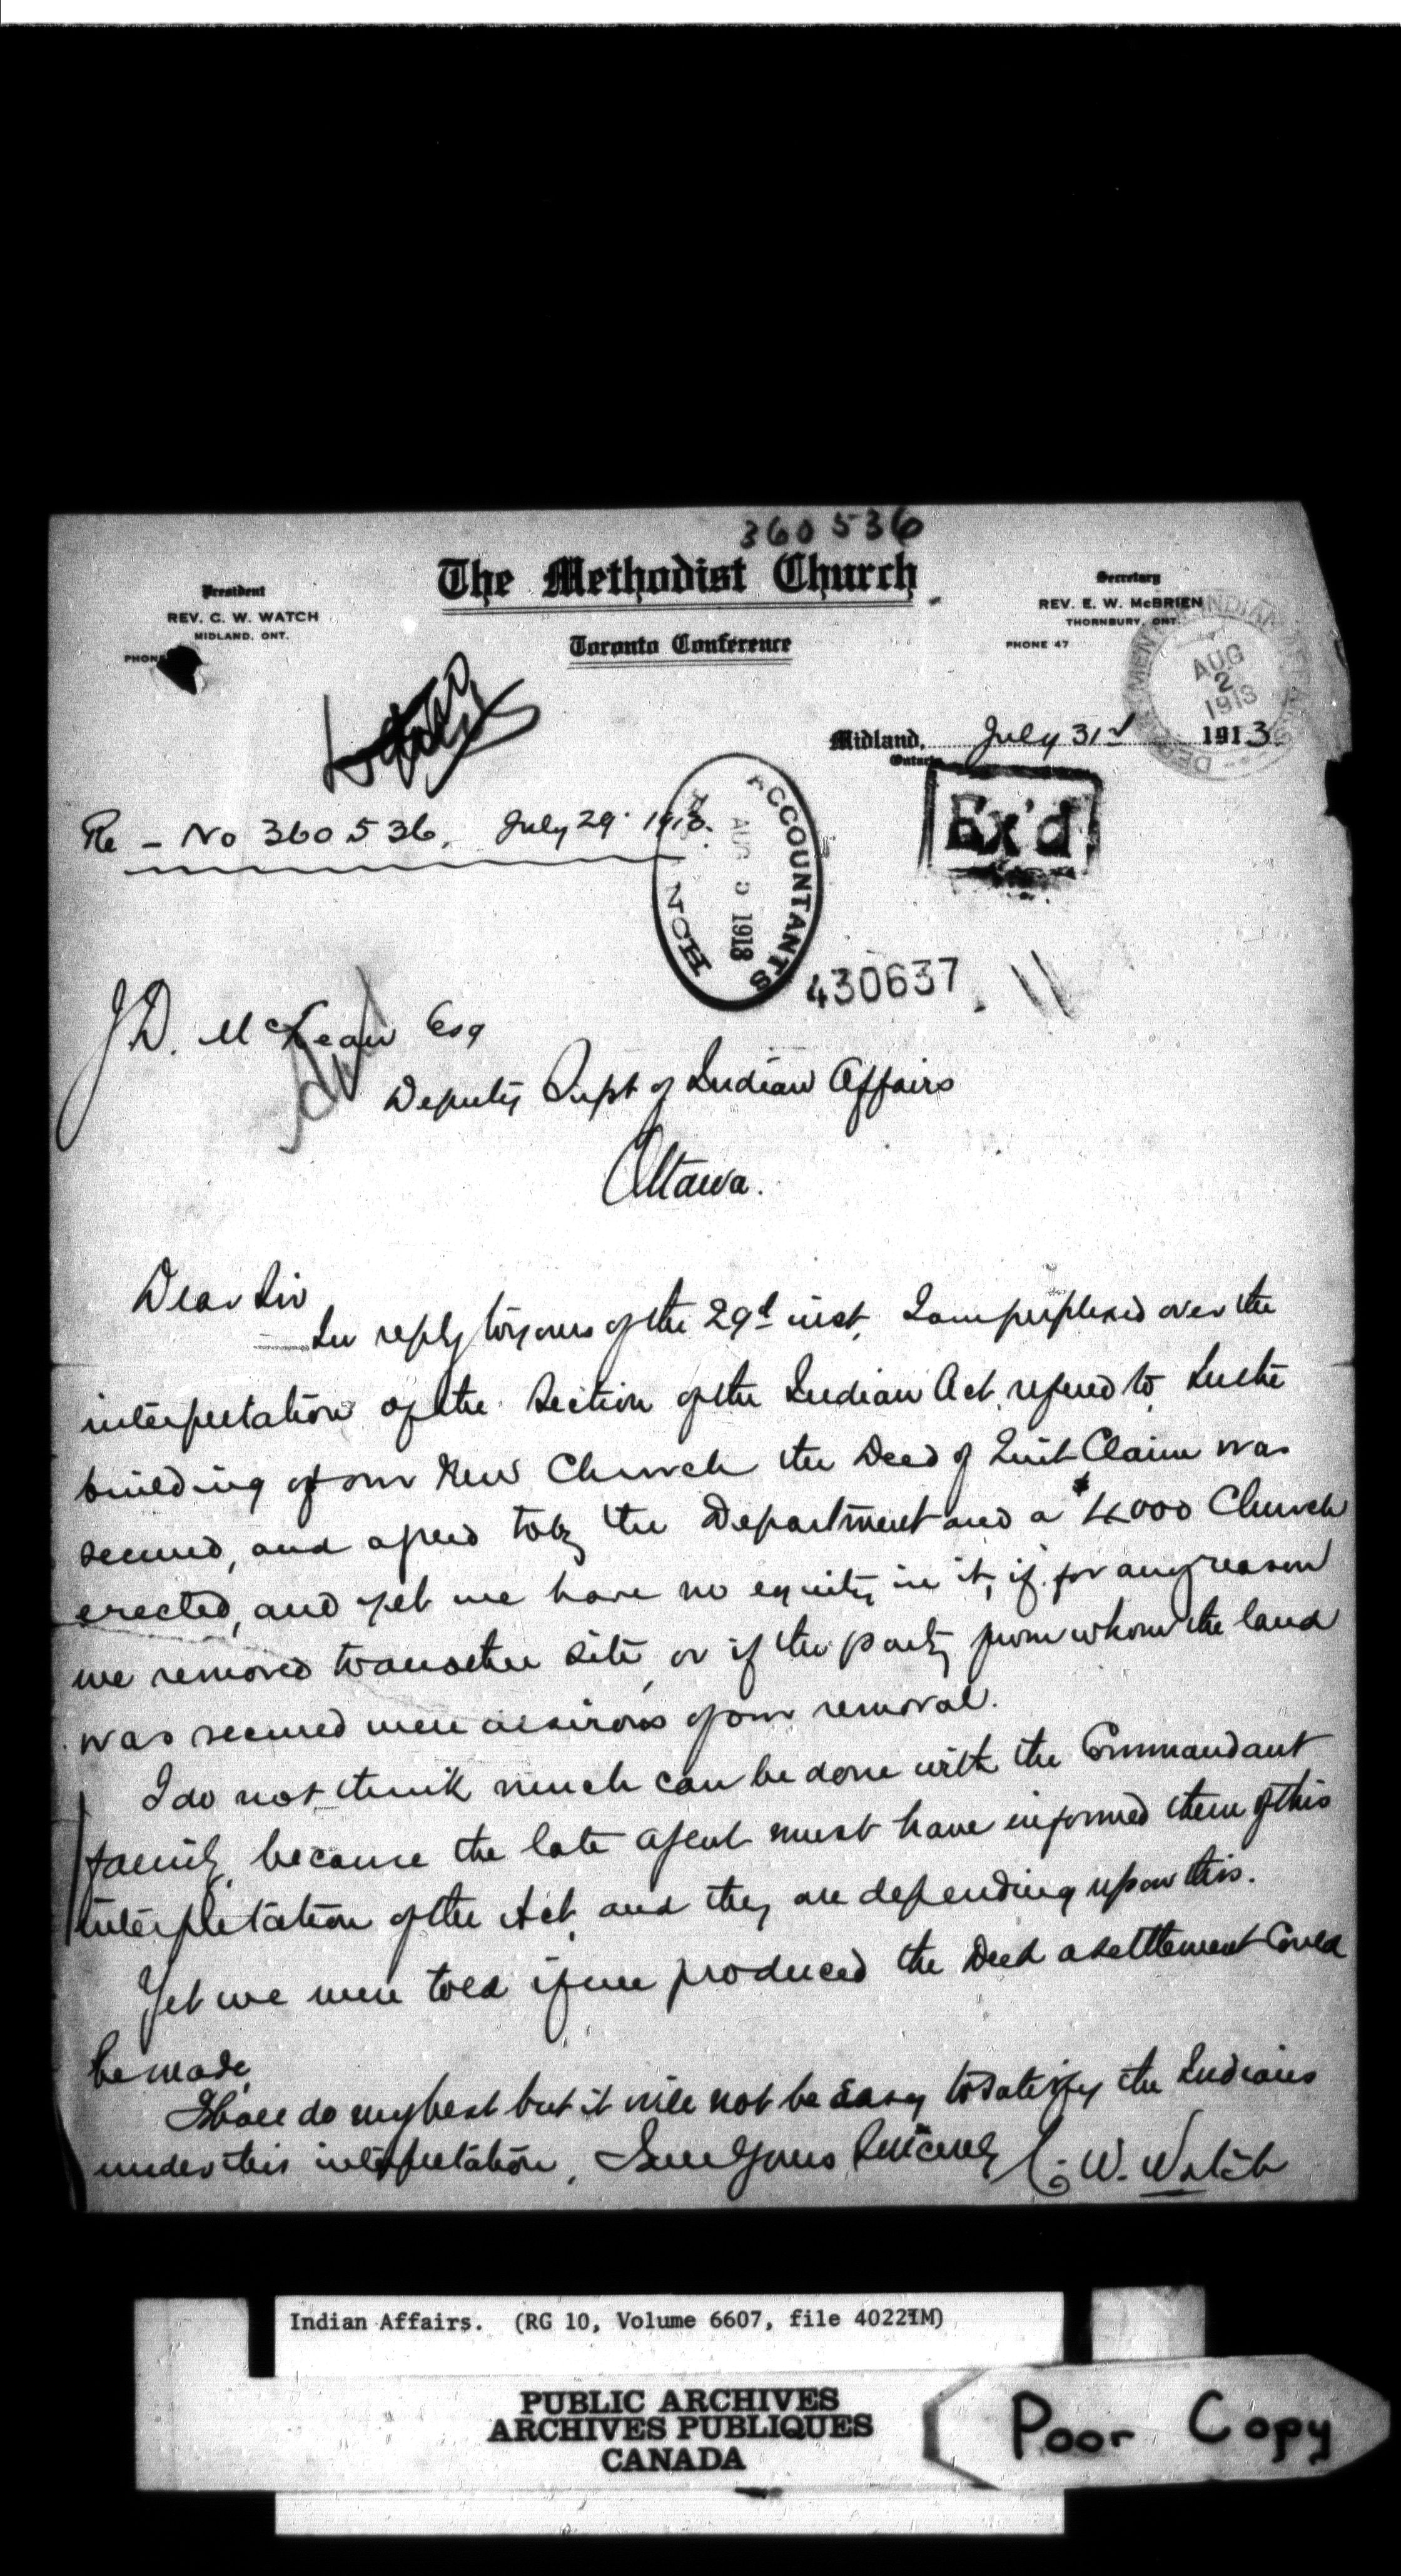 360536
The Methodist Church
Toronto Conference
President
REV. C. W. WATCH
MIDLAND, ONT.
PHONE
Secretary
REV. E. W. McBRIEN
THORNBURY, ONT.
PHONE 47
INDIAN
AUG
2
1913
Midland, July 31st 1913.
Ontario
Re - No 360536. July 29 1913.
ACCOUNTANTS
AUG 5 1913
Ex'd
430637
J.D. McLean Esq
Deputy Supt of Indian Affairs
Ottawa.
Dear Sir
In reply to yours of the 29th inst, I am perplexed over the
interpretation of the Section of the Indian Act, refered to. In the
building of our New Church the Deed of Quit Claim was
secured, and agreed to by the Department and a $4000 Church
erected, and yet we have no equity in it, if for any reason
we removed to another site, or if the party from whom the land
was secured were desirous of our removal.
I do not think much can be done with the Commandant
family, because the late agent must have informed them of this
interpretation of the Act, and they are depending upon this.
Yet we were told if we produced the Deed a settlement could
be made.
I shall do my best but it will not be easy to satisfy the Indians
under this interpretation, I am Yours Sincerely C. W. Watch
Indian Affairs. (RG 10, Volume 6607, file 4022-1M)
PUBLIC ARCHIVES
ARCHIVES PUBLIQUES
CANADA
Poor Copy